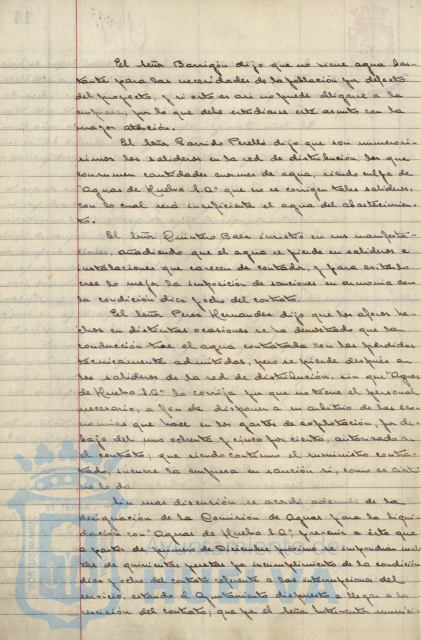 El Señor Barrigón dijo que no viene agua bas-
tante para las necesidades de la población por defecto
del proyecto, y si esto es asi no puede obligarse a la
empresa, por lo que debe estudiarse este asunto con la
mayor atención.
El Señor Garrido Perelló dijo que son numerosi-
simos los salideros en la red de distribución, los que
consumen cantidades enormes de agua, siendo culpa de
"Aguas de Huelva S.A." que no se corrigen tales salideros,
con lo cual será insuficiente el agua del abastecimien-
to.
El Señor Quintero Baez insistió en sus manifesta-
ciones, añadiendo que el agua se pierde en salideros e
instalaciones que carecen de contador, y para evitarlo
cree lo mejor la imposición de sanciones en armonia con
la condición diez y ocho del contrato.
El Señor Perez Hernandez dijo que los aforos he-
chos en distintas ocasiones se ha demostrado que la
conducción trae el agua contratada con las pérdidas
técnicamente admitidas, pero se pierde después en
los salideros de la red de distribución, sin que "Aguas
de Huelva S.A." lo corrija por que no tiene el personal
necesario, a fin de disponer a su arbitrio de las eco-
nomias que hace en los gastos de explotación, por de-
bajo del uno ochenta y cinco por ciento, autorizado en
el contrato, que siendo continuo el suministro contra-
tado, incurre la empresa en sanción si, como es cierto
no lo da.
Sin mas discusión se acordó además de la
designación de la Comisión de Aguas para la liqui-
dación con "Aguas de Huelva S.A.", prevenir a ésta que
a partir de primero de Diciembre próximo se impondrán mul-
tas de quinientas pesetas por incumplimiento de la condición
diez y ocho del contrato referente a las interrupciones del
servicio, estando el Ayuntamiento dispuesto a llegar a la
rescisión del contrato; que por el Señor Interventor munici-